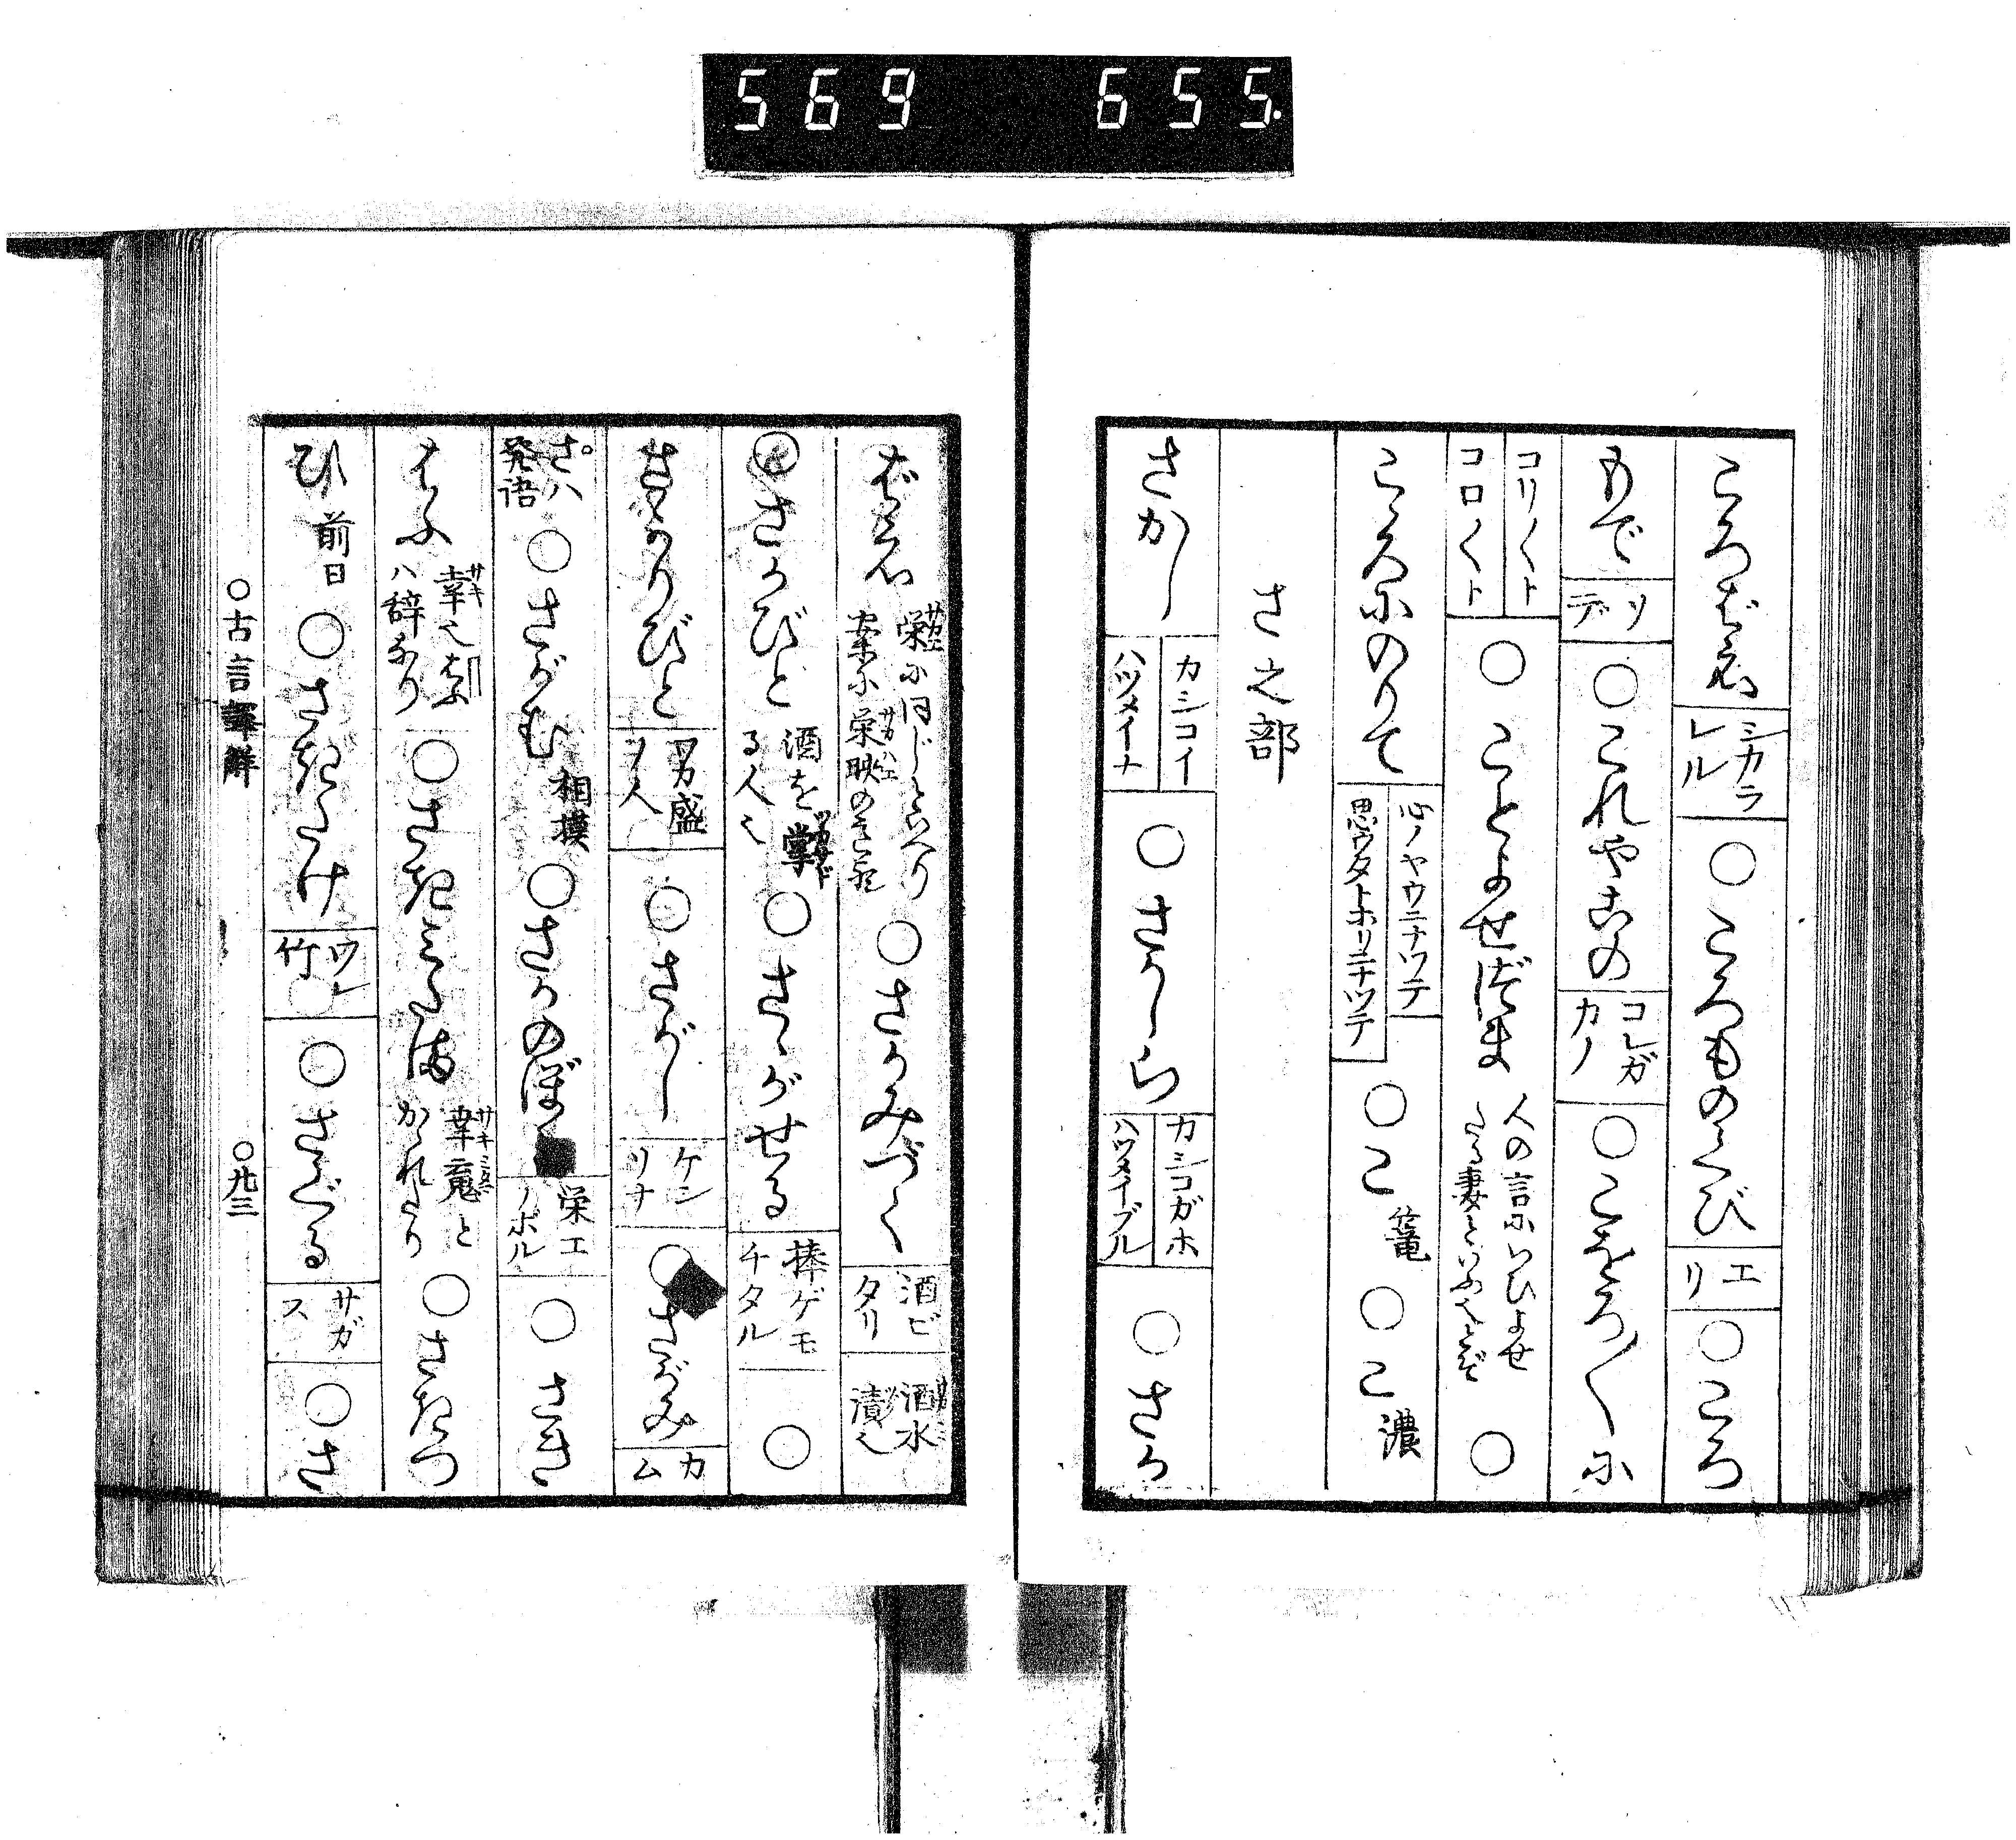 569 655.
ころばえ シカラレル ○ころものくび エリ ○ころ
もで ソデ ○これやこの コレガカノ ○こをろ〳〵に
コリ〳〵ト コロ〳〵ト ○ことよせづま 人の言にいひよせたる妻といふことぞ ○
こゝろにのりて 心ノヤウニナツテ 思ウタトホリニナツテ ○こ 篭 ○こ 濃
さ之部
さかし カシコイ ハツメイナ ○さかしら カシコガホ ハツメイブル ○さか
栄に同じといへり 案に栄映の ○さかみづく 酒ビタリ 酒水漬也
○さかびと 酒を掌る人也 ○さゝがせる 捧ゲモチタル ○
さかりびと ワカ盛ノ人 ○さがし ケンソナ ○さがみ カム
さハ発語 ○さがむ 相摸 ○さかのぼ 栄エノボル ○さき
はふ 幸也はふハ辞なり ○さきみたま 幸魂とかゝれたり ○さきつ
ひ 前日 ○さきたけ ワレ竹 ○さぐる サガス ○さ
○古言譯解 ○九三